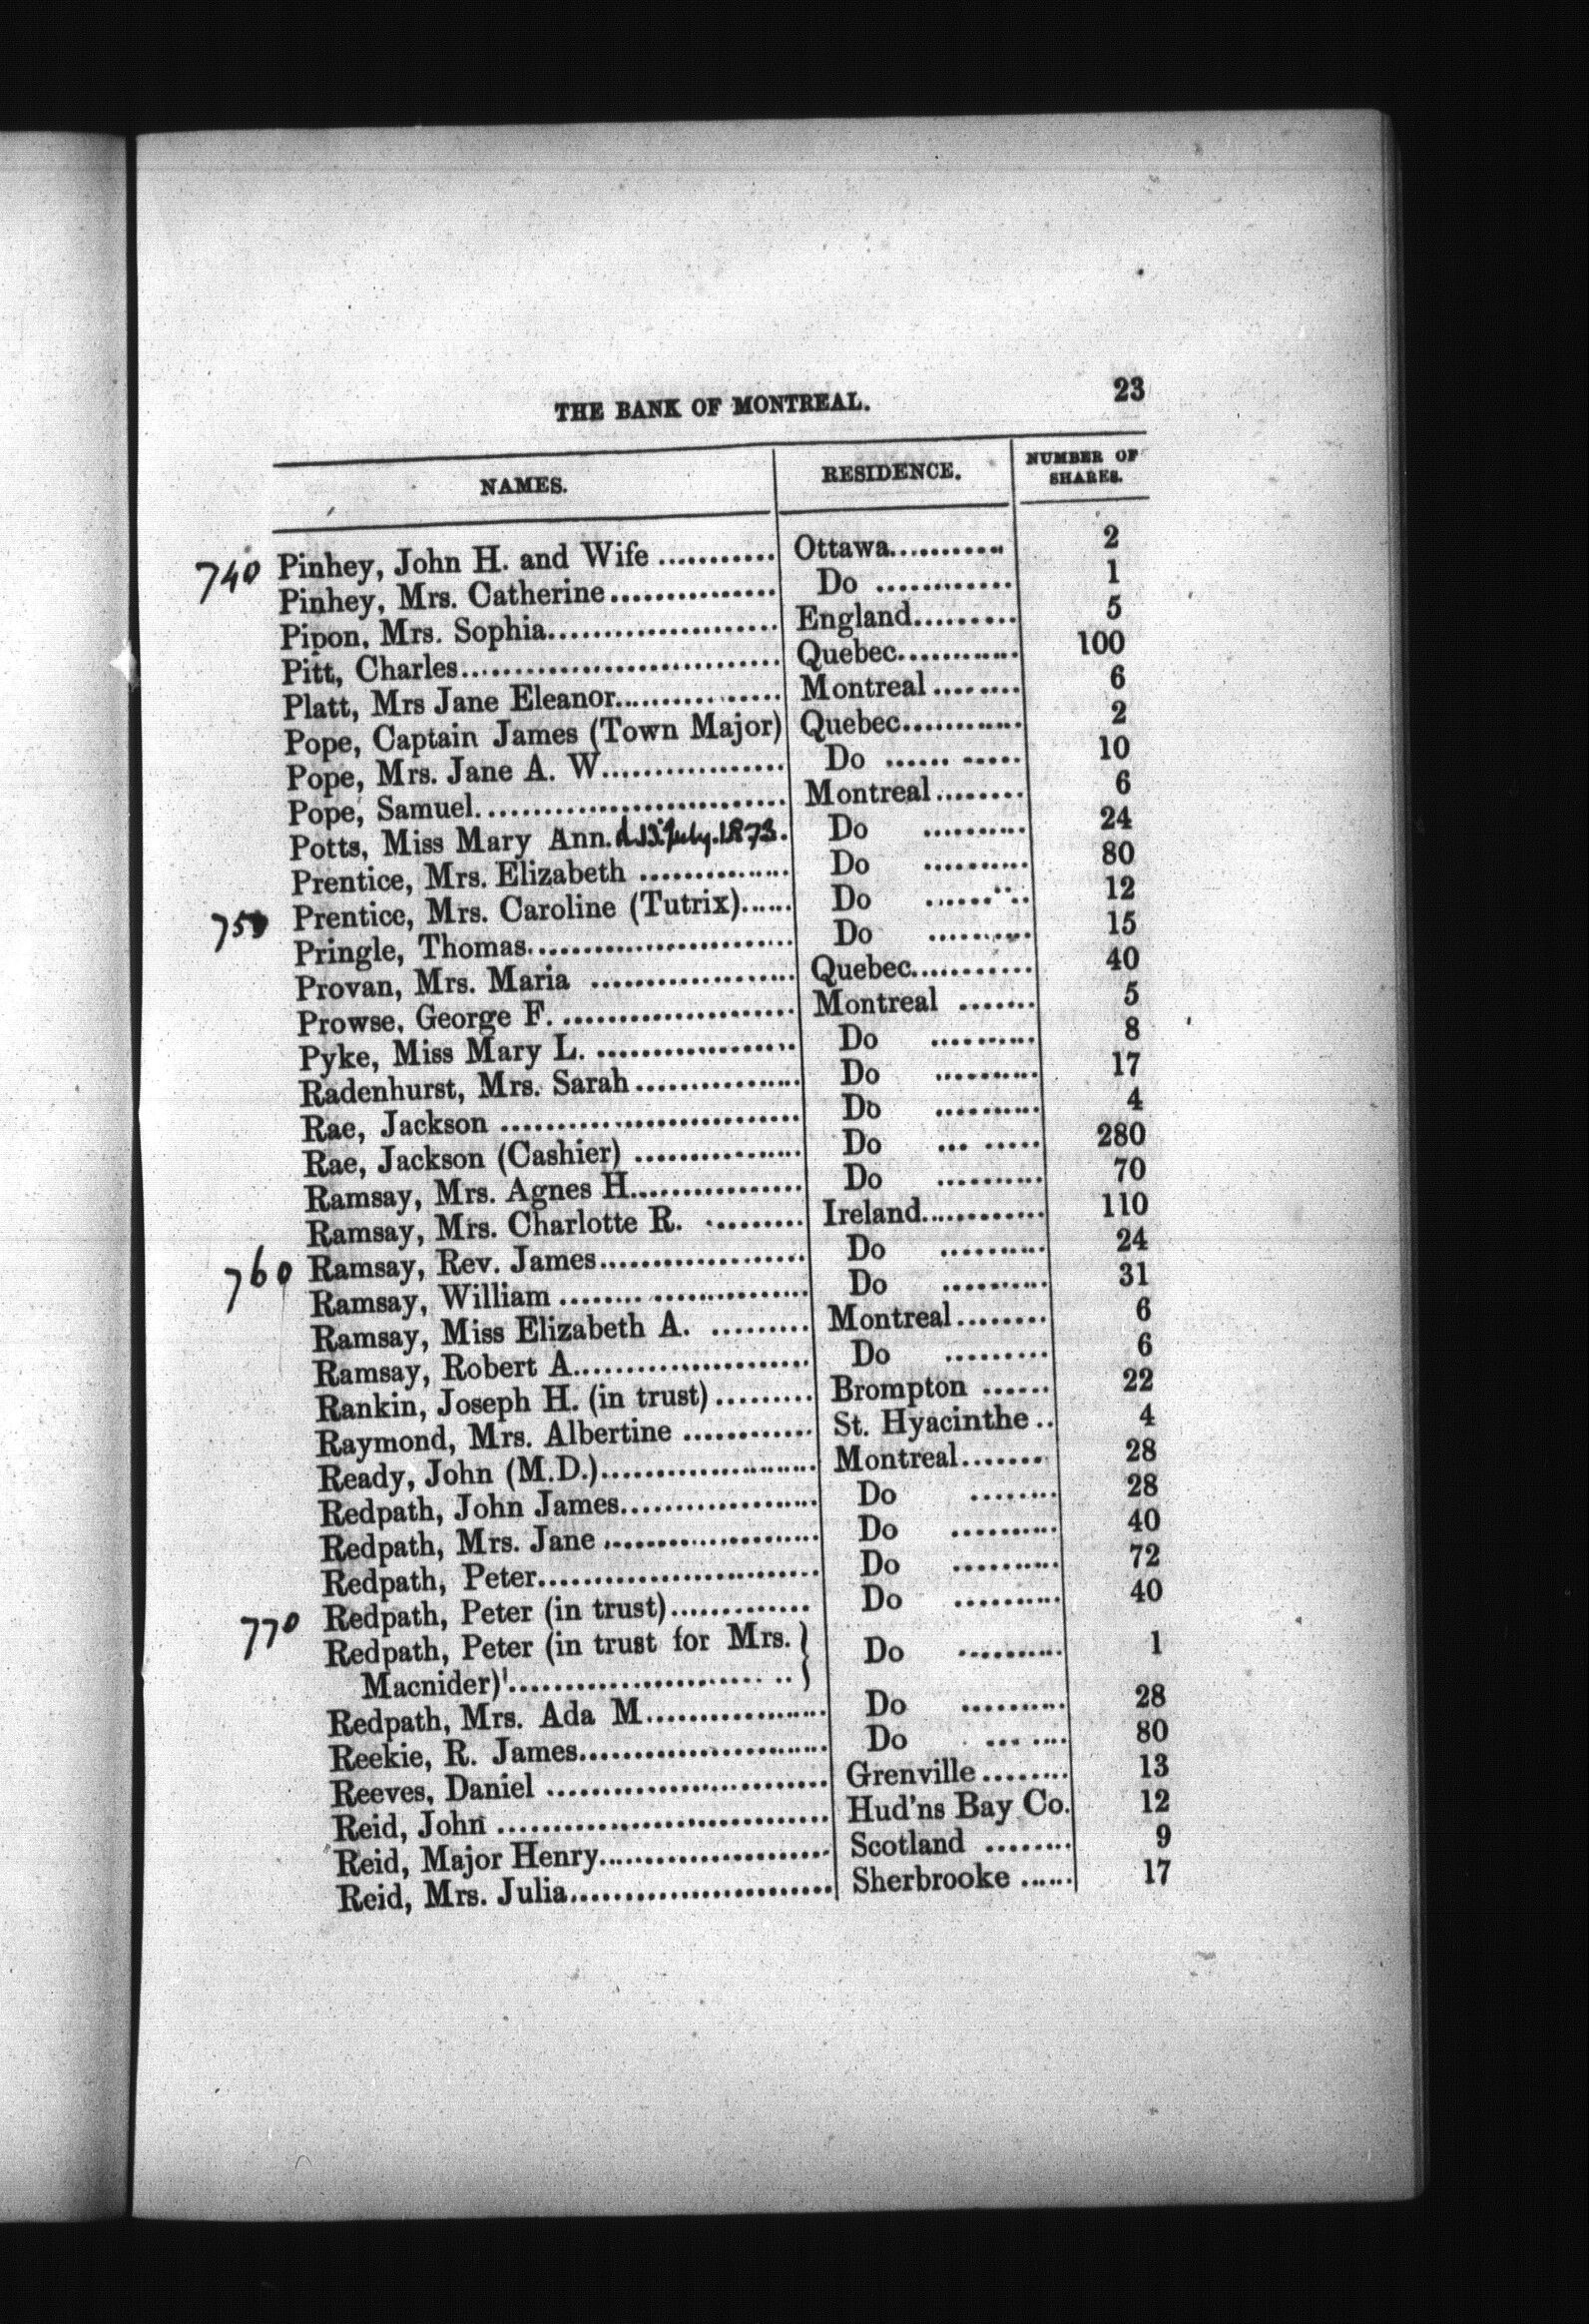 THE BANK OF MONTREAL. 23
NAMES. RESIDENCE. NUMBER OF SHARES.
740 Pinhey, John H. and Wife ........... Ottawa........... 2
Pinhey, Mrs. Catherine............... Do ............ 1
Pipon, Mrs. Sophia..................... England.......... 5
Pitt, Charles............................. Quebec............ 100
Platt, Mrs Jane Eleanor............... Montreal ........ 6
Pope, Captain James (Town Major) Quebec............ 2
Pope, Mrs. Jane A. W................. Do ............ 10
Pope, Samuel............................ Montreal........ 6
Potts, Miss Mary Ann. d. 13. July. 1873. Do .......... 24
Prentice, Mrs. Elizabeth .............. Do .......... 80
750 Prentice, Mrs. Caroline (Tutrix)...... Do .......... 12
Pringle, Thomas......................... Do .......... 15
Provan, Mrs. Maria ................... Quebec............ 40
Prowse, George F. ...................... Montreal ....... 5
Pyke, Miss Mary L. ................... Do .......... 8
Radenhurst, Mrs. Sarah ............... Do .......... 17
Rae, Jackson ............................ Do .......... 4
Rae, Jackson (Cashier) ............... Do ... ..... 280
Ramsay, Mrs. Agnes H................ Do .......... 70
Ramsay, Mrs. Charlotte R. .......... Ireland............ 110
760 Ramsay, Rev. James................... Do .......... 24
Ramsay, William ........ .............. Do .......... 31
Ramsay, Miss Elizabeth A. ......... Montreal........ 6
Ramsay, Robert A...................... Do ......... 6
Rankin, Joseph H. (in trust) ......... Brompton ...... 22
Raymond, Mrs. Albertine ............ St. Hyacinthe .. 4
Ready, John (M.D.)..................... Montreal....... 28
Redpath, John James................... Do ........ 28
Redpath, Mrs. Jane ..................... Do .......... 40
Redpath, Peter........................... Do .......... 72
770 Redpath, Peter (in trust)............. Do .......... 40
Redpath, Peter (in trust for Mrs. } Do .......... 1
Macnider)........................ .. }
Redpath, Mrs. Ada M................. Do .......... 28
Reekie, R. James........................ Do ... .... 80
Reeves, Daniel ........................... Grenville ........ 13
Reid, John ................................ Hud'ns Bay Co. 12
Reid, Major Henry....................... Scotland ........ 9
Reid, Mrs. Julia.......................... Sherbrooke ...... 17